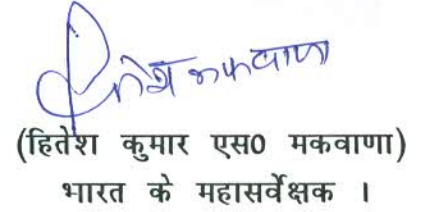 हितेश मकवाणा
(हितेश कुमार एस0 मकवाणा)
भारत के महासर्वेक्षक ।